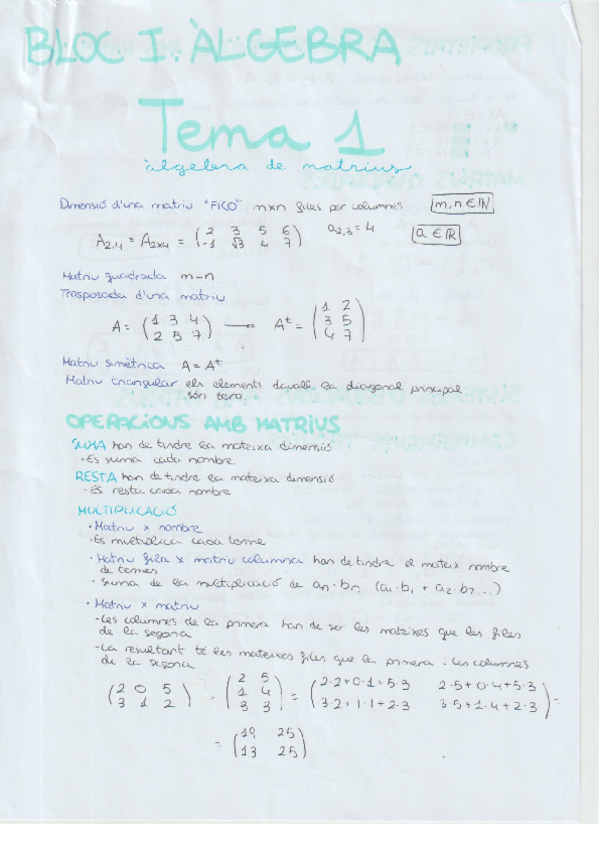 BLOC I: ÀLGEBRA
Tema 1
àlgebra de matrius
Dimensió d'una matriu "FICO" m×n files per columnes m,n ∈ ℕ
A2,4 = A2x4 = ( 2 3 5 6 ; -1 √3 4 7 ) a2,3 = 4 a ∈ ℝ
Matriu quadrada m=n
Trasposada d'una matriu
A = ( 1 3 4 ; 2 5 7 ) → Aᵗ = ( 1 2 ; 3 5 ; 4 7 )
Matriu simètrica A = Aᵗ
Matriu triangular els elements davall la diagonal principal
són zero.
OPERACIONS AMB MATRIUS
SUMA han de tindre la mateixa dimensió
· Es suma cada nombre
RESTA han de tindre la mateixa dimensió
· Es resta cada nombre
MULTIPLICACIÓ
· Matriu x nombre
· Es multiplica cada terme
· Matriu fila x matriu columna han de tindre el mateix nombre
de termes
· Suma de la multiplicació de an · bn (a1·b1 + a2·b2...)
· Matriu x matriu
- Les columnes de la primera han de ser les mateixes que les files
de la segona
- La resultant té les mateixes files que la primera i les columnes
de la segona
( 2 0 5 ; 3 1 2 ) · ( 2 5 ; 1 4 ; 3 3 ) = ( 2·2+0·1+5·3 2·5+0·4+5·3 ; 3·2+1·1+2·3 3·5+1·4+2·3 ) =
= ( 19 25 ; 13 25 )